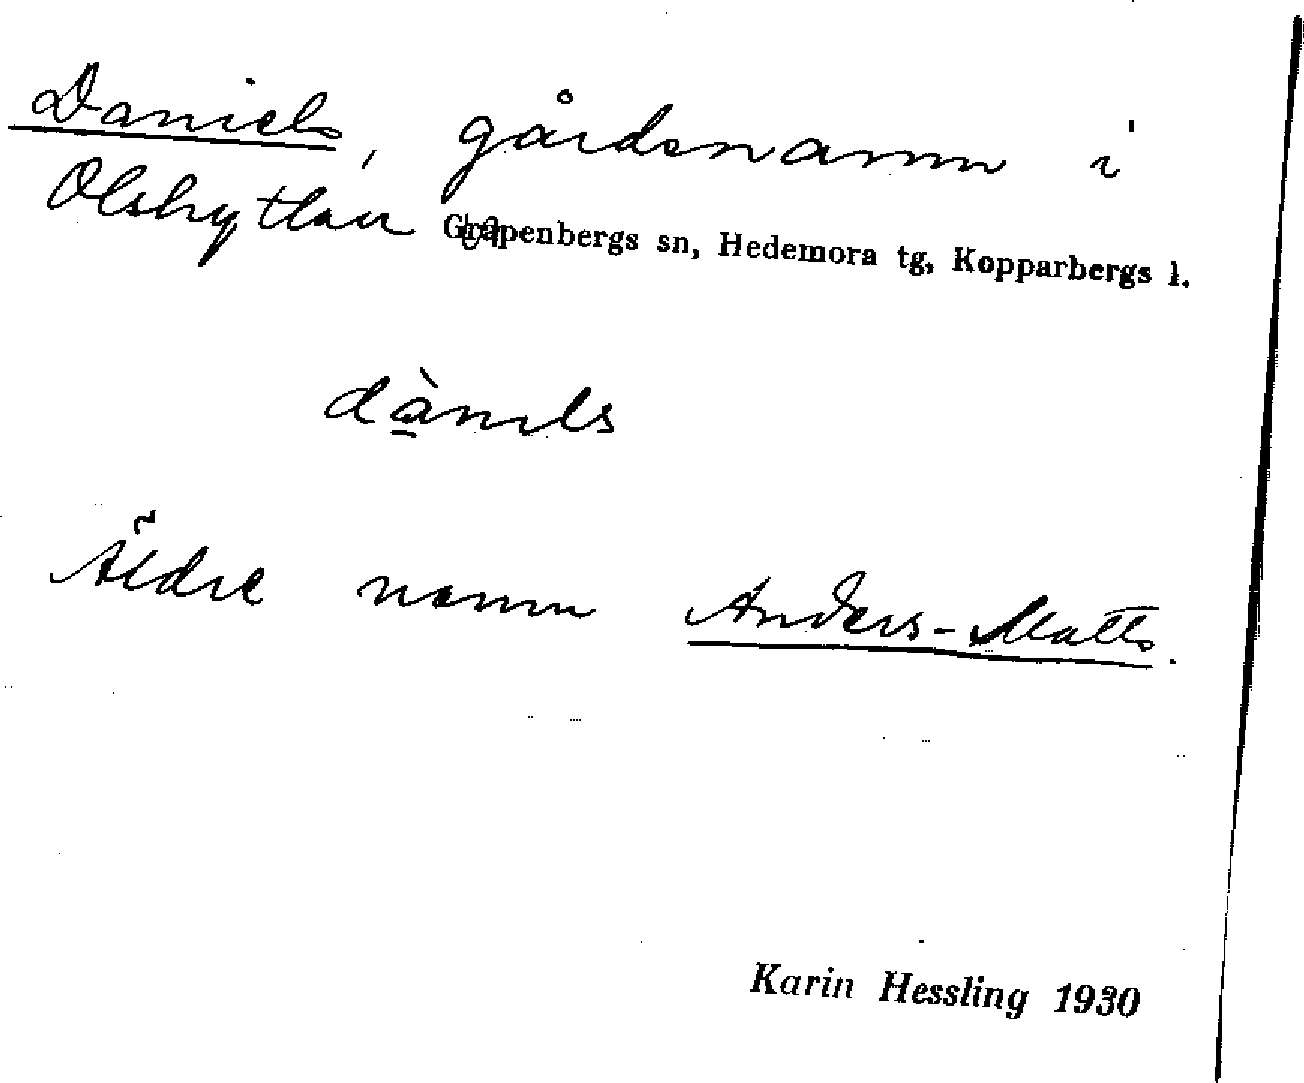 Daniels, gårdsnamn i
Olshyttan Garpenbergs sn, Hedemora tg, Kopparbergs l.
dà̱nɩls
Äldre namn Anders-Matts.
Karin Hessling 1930